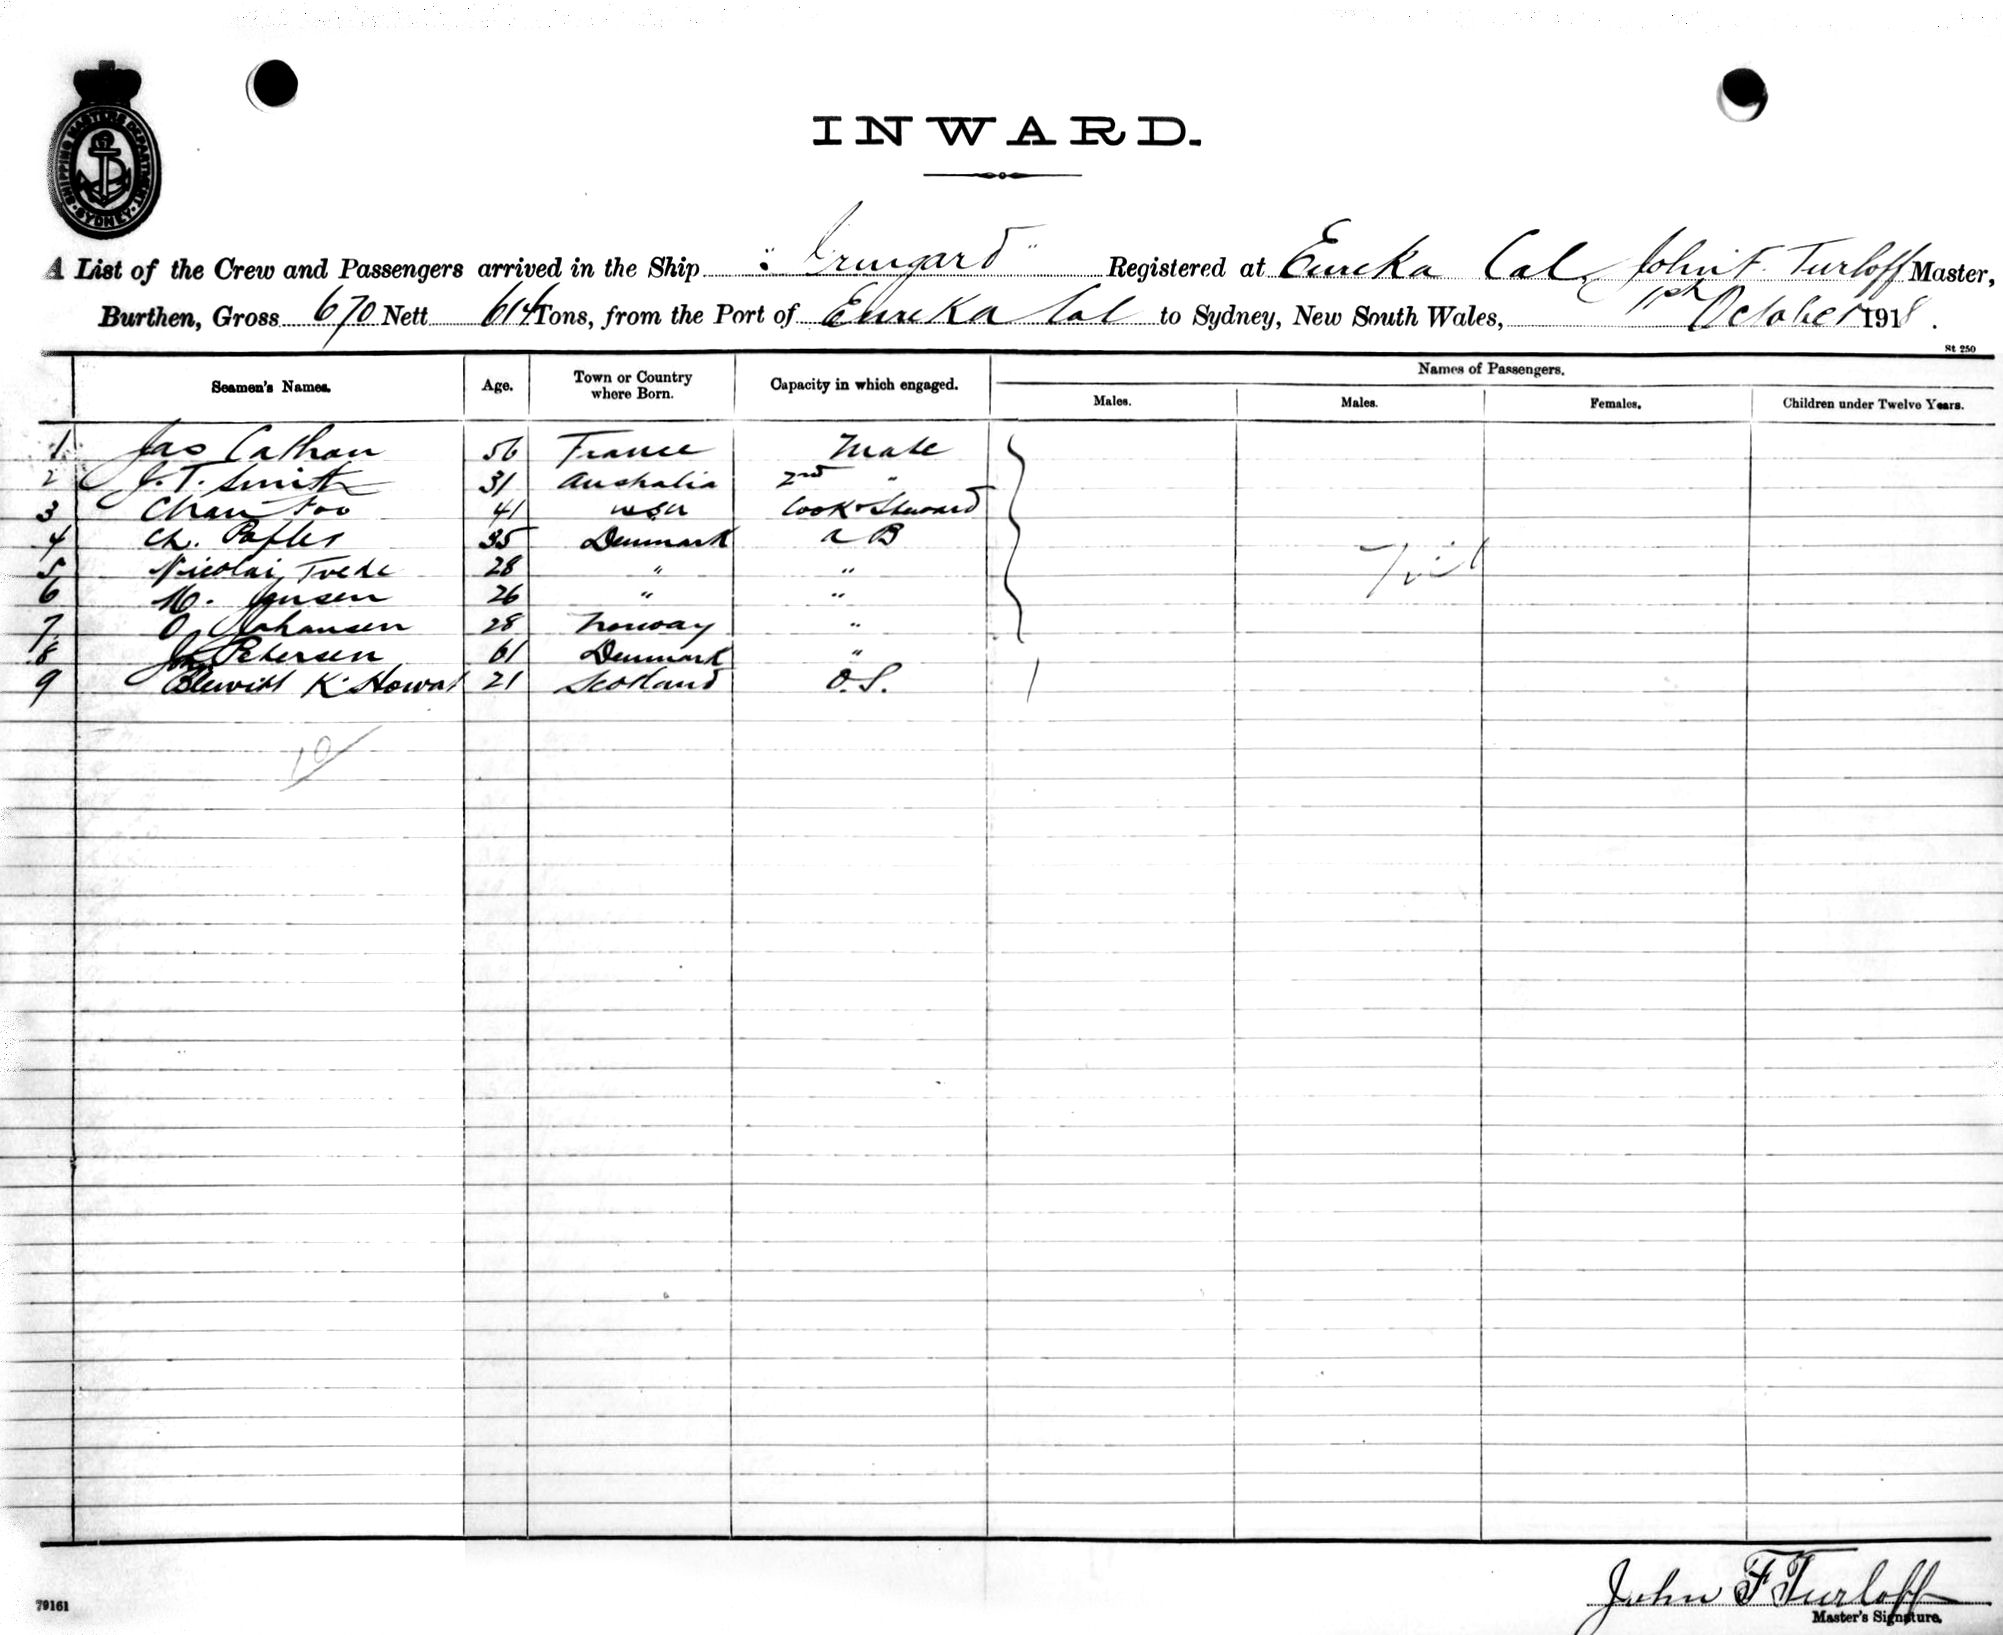 SHIPPING MASTERS DEPARTMENT
SYDNEY
INWARD.
A List of the Crew and Passengers arrived in the Ship "Irmgard" Registered at Eureka Cal, John F. Turloff Master,
Burthen, Gross 670 Nett 614 Tons, from the Port of Eureka Cal to Sydney, New South Wales, October 1918.
St 250
Seamen's Names. Age. Town or Country where Born. Capacity in which engaged. Names of Passengers.
Males. Males. Females. Children under Twelve Years.
1 Jas Cathan 56 France Mate
2 J. T. Smith 31 Australia 2nd "
3 Chan Foo 41 USA Cook & Steward
4 Ch. 35 Denmark A B
5 Nicolai Tvede 28 " "
Nil
6 M. Jensen 26 " "
7 O Johansen 28 Norway "
8 Petersen 61 Denmark "
9 Blewitt K. Howat 21 Scotland O.S.
10
John F Turloff
Master's Signature.
79161